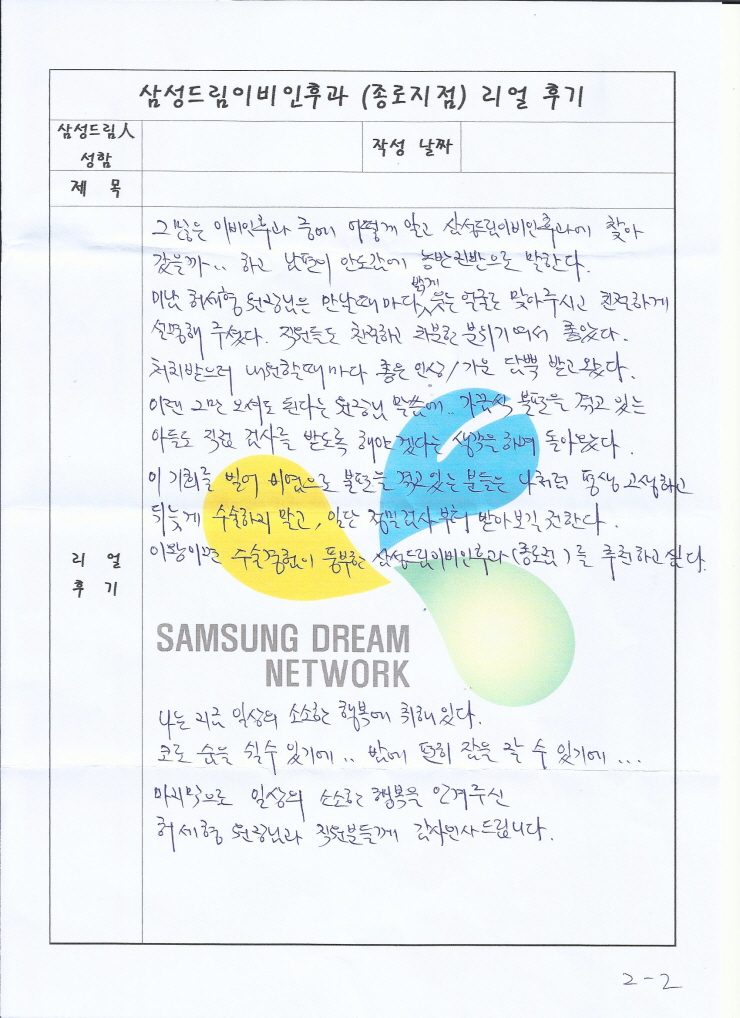 삼성드림이비인후과 (종로지점) 리얼 후기
삼성드림人
성함
작성 날짜
제 목
그많은 이비인후과 중에 어떻게 알고 삼성드림이비인후과에 찾아
갔을까.. 하고 남편이 안도감에 농반진반으로 말한다.
미남 허세형 원장님은 만날때마다 밝게 웃는 얼굴로 맞아주시고 친절하게
설명해 주셨다. 직원들도 친절하고 차분한 분위기여서 좋았다.
처치받으러 내원할때마다 좋은 인상/기운 담뿍 받고 왔다.
이젠 그만 오셔도 된다는 원장님 말씀에.. 가끔식 불편을 겪고 있는
아들도 직접 검사를 받도록 해야 겠다는 생각을 하며 돌아왔다.
이 기회를 빌어 비염으로 불편을 겪고있는 분들은 나처럼 평생 고생하고
뒤늦게 수술하지 말고, 일단 정밀검사부터 받아보길 전한다.
이왕이면 수술경험이 풍부한 삼성드림이비인후과(종로점)를 추천하고 싶다.
리 얼
후 기
SAMSUNG DREAM
NETWORK
나는 지금 일상의 소소한 행복에 취해있다.
코로 숨을 쉴수 있기에.. 밤에 편히 잠을 잘 수 있기에...
마지막으로 일상의 소소한 행복을 안겨주신
허세형 원장님과 직원분들께 감사인사드립니다.
2-2